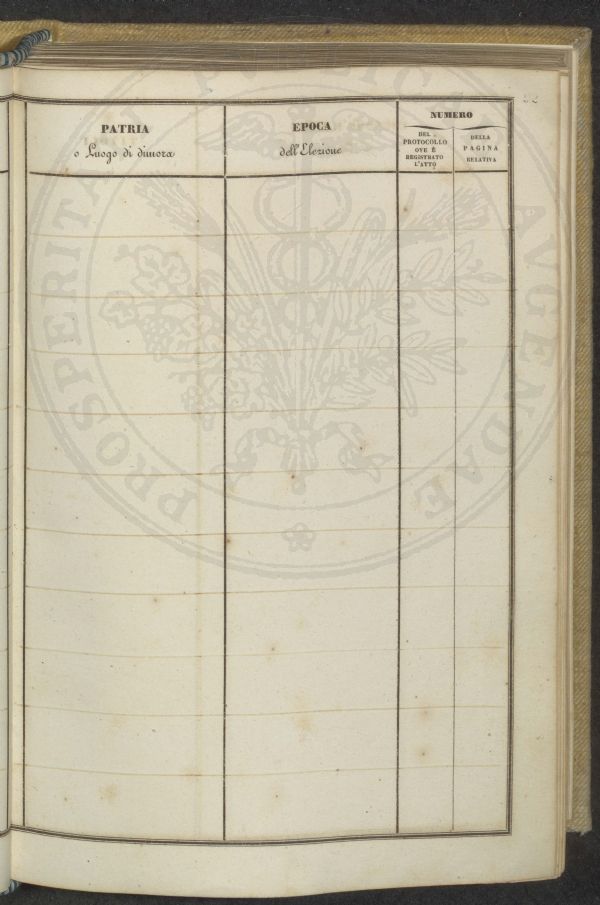 32
PATRIA
o Luogo di dimora
EPOCA
dell'Elezione
NUMERO
DEL
PROTOCOLLO
OVE È
REGISTRATO
L'ATTO
DELLA
PAGINA
RELATIVA
PROSPERITATI PUBLICAE AVGENDAE